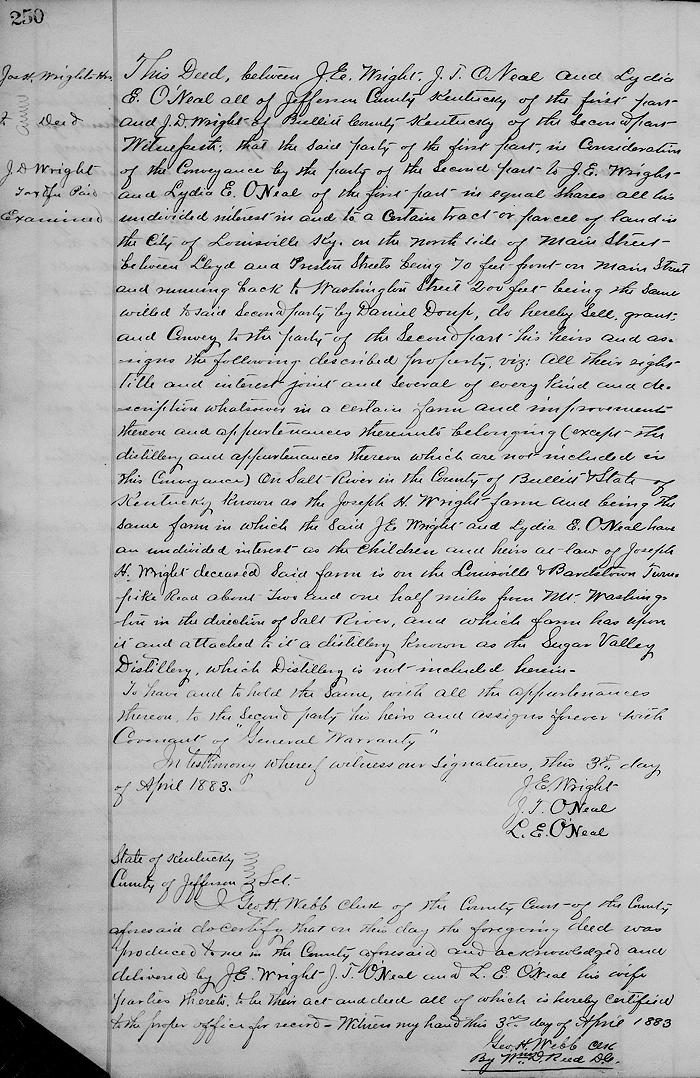 250
Jos H. Wright Hrs
to Deed
J D Wright
Tax & fee Paid
Examined
This Deed, between J. E. Wright. J. T. O'Neal and Lydia
E. O'Neal all of Jefferson County Kentucky of the first part
and J. D. Wright of Bullitt County Kentucky of the Second part
Witnesseth; that the said party of the first part, in Consideration
of the Conveyance by the party of the Second part to J. E. Wright
and Lydia E. O'Neal of the first part in equal shares all his
undivided interest in and to a Certain tract or parcel of land in
the City of Louisville Ky. on the north side of Main Street
between Lloyd and Preston Streets being 70 feet front on Main Street
and running back to Washington Street 200 feet being the same
willed to said Second party by Daniel Doup, do hereby sell, grant
and Convey to the party of the Second part his heirs and as-
-signs the following described property, viz: All their right
title and interest joint and several of every kind and de-
-scription whatsoever in a certain farm and improvements
thereon and appurtenances thereunto belonging (except the
distillery and appurtenances thereon which are not included in
this Conveyance) On Salt River in the County of Bullitt & State of
Kentucky known as the Joseph H. Wright farm and being the
same farm in which the said J. E. Wright and Lydia E. O'Neal have
an undivided interest as the children and heirs at law of Joseph
H. Wright deceased Said farm is on the Louisville & Bardstown Turn-
pike Road about Two and one half miles from Mt. Washing-
ton in the direction of Salt River, and which farm has upon
it and attached to it a distillery known as the Sugar Valley
Distillery, which Distillery is not included herein-
To have and to hold the same, with all the appurtenances
thereon, to the Second party his heirs and assigns forever with
Covenant of "General Warranty"
In testimony whereof witness our signatures, this 3rd day
of April 1883.
J. E. Wright
J. T. O'Neal
L. E. O'Neal
State of Kentucky
County of Jefferson Sct.
I Geo. H. Webb clerk of the County Court of the County
aforesaid do certify that on this day the foregoing deed was
produced to me in the County aforesaid and acknowledged and
delivered by J. E. Wright J. T. O'Neal and L. E. O'Neal his wife
parties thereto, to be their act and deed all of which is hereby certified
to the proper office for record - Witness my hand this 3rd day of April 1883
Geo. H. Webb Clk
By Wm D. Reed D.C.